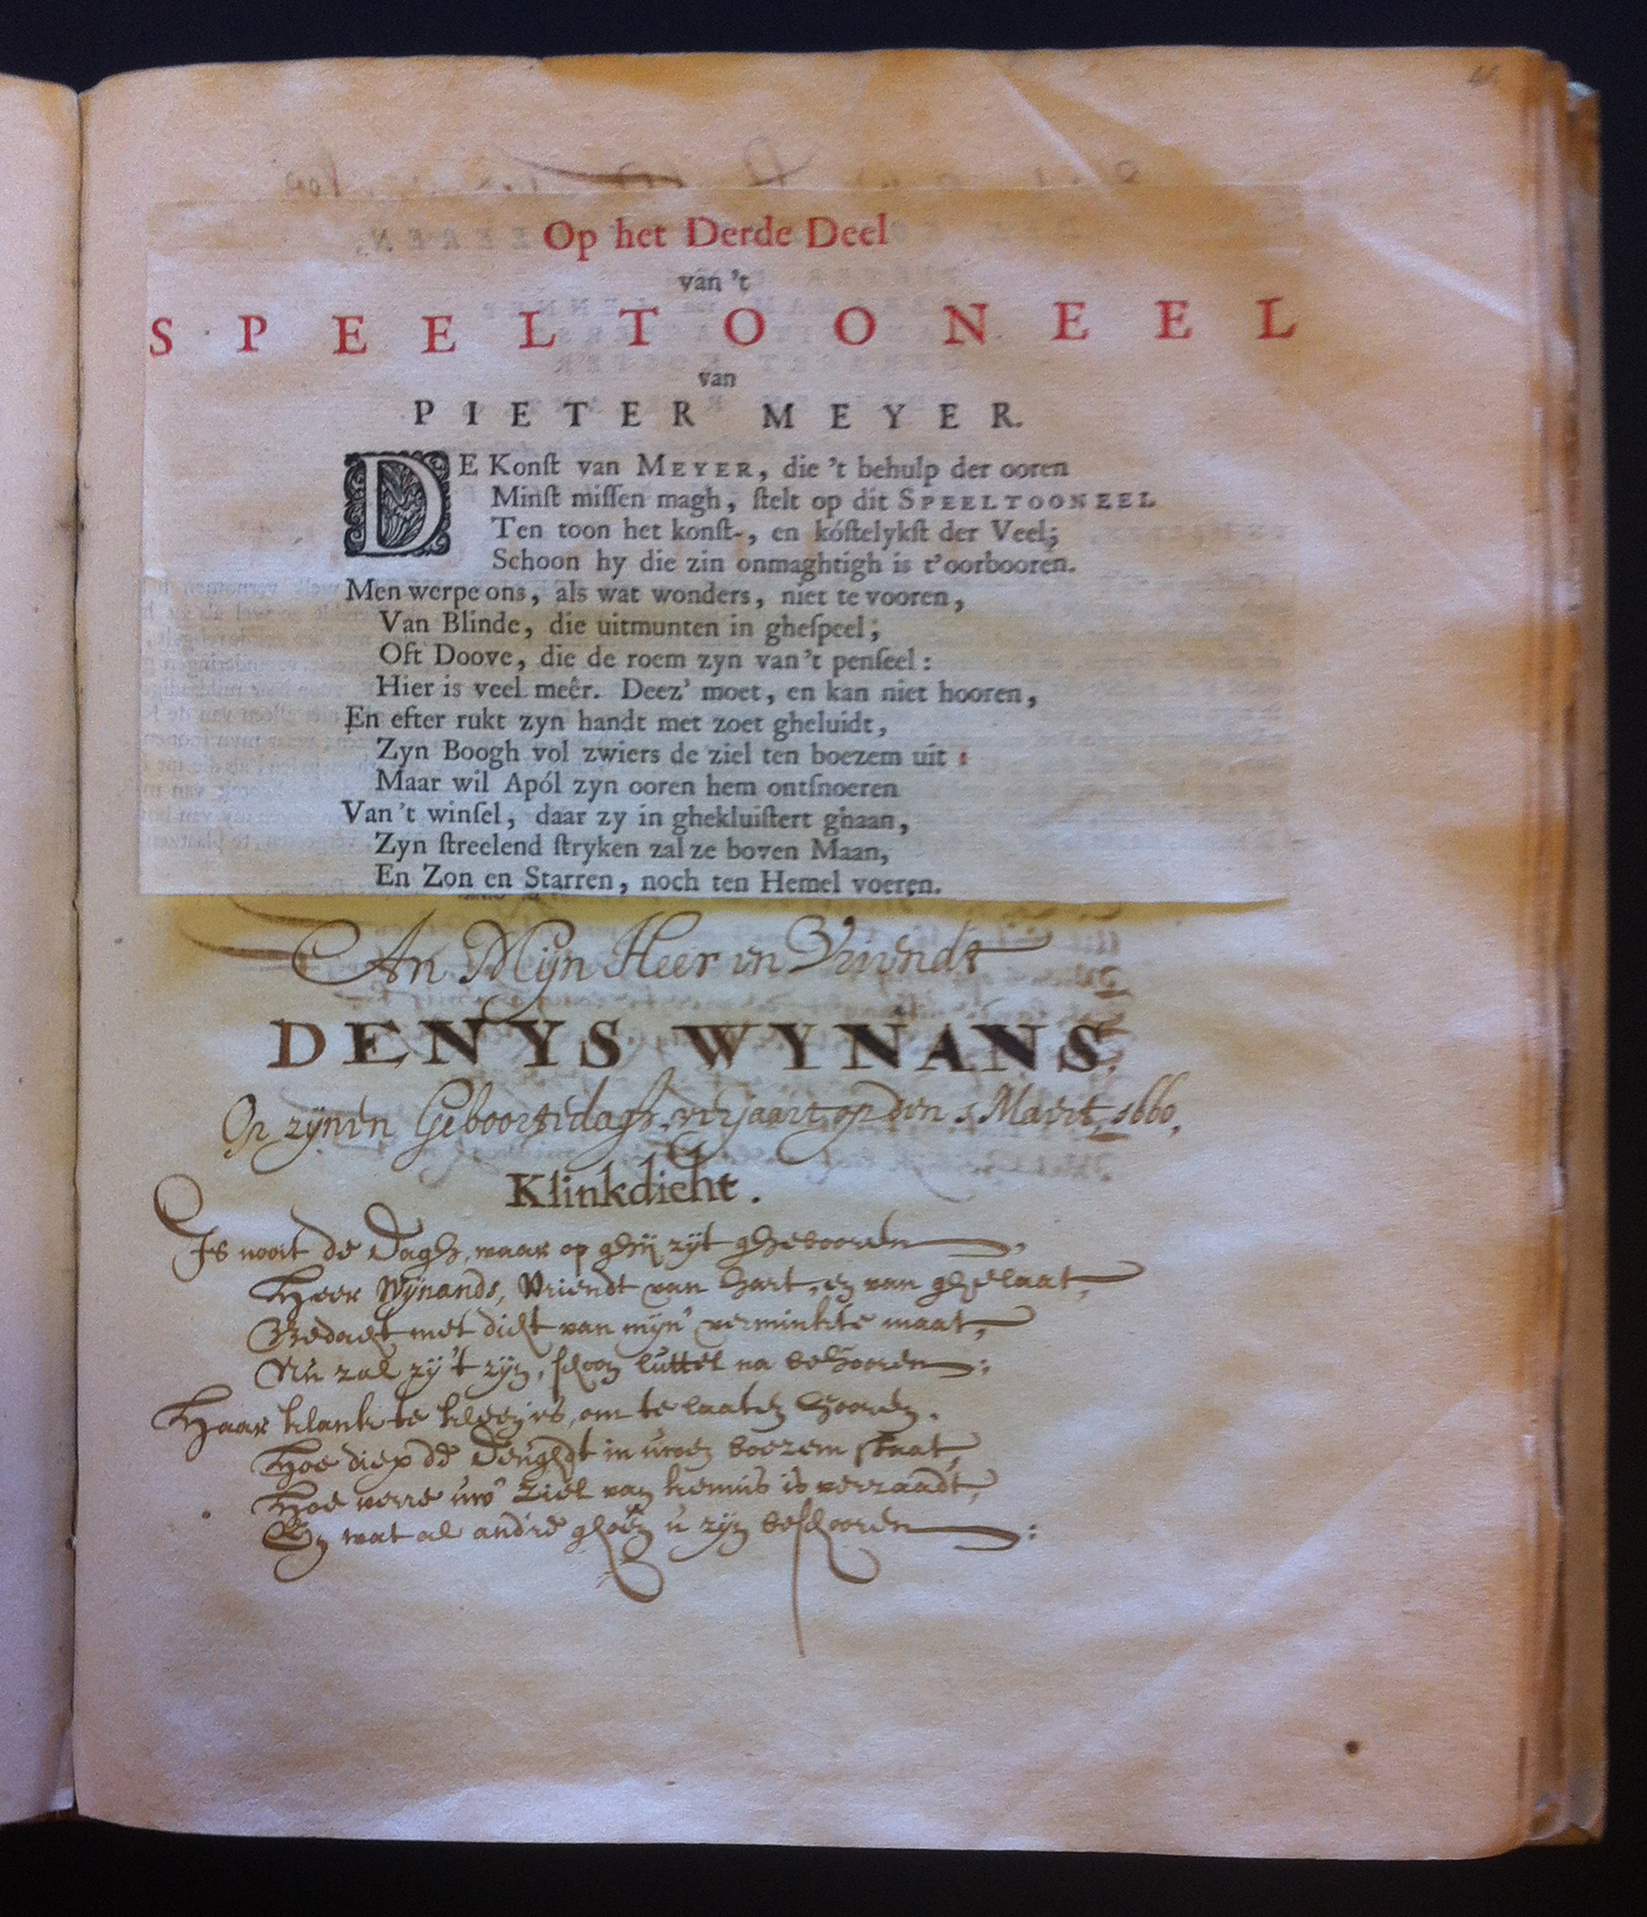 Op het Derde Deel
van 't
SPEELTOONEEL
van
PIETER MEYER.
DE Konſt van MEYER, die 't behulp der ooren
Minſt miſſen magh, ſtelt op dit SPEELTOONEEL
Ten toon het konſt-, en kóſtelykſt der Veel;
Schoon hy die zin onmaghtigh is t'oorbooren.
Men werpe ons, als wat wonders, niet te vooren,
Van Blinde, die uitmunten in gheſpeel;
Oft Doove, die de roem zyn van 't penſeel:
Hier is veel meêr. Deez' moet, en kan niet hooren,
En efter rukt zyn handt met zoet gheluidt,
Zyn Boogh vol zwiers de ziel ten boezem uit:
Maar wil Apól zyn ooren hem ontſnoeren
Van 't winſel, daar zy in ghekluiſtert ghaan,
Zyn ſtreelend ſtryken zal ze boven Maan,
En Zon en Starren, noch ten Hemel voeren.
An Mijn Heer en Vriendt
DENYS WYNANS.
Op zijnen Geboortedagh, verjaart op den 5 Maert, 1660.
Klinkdicht.
Is nooit de Dagh, waar op ghij zijt ghebooren,
Heer Wijnands, Vriendt van hart, en van ghelaat,
Bedacht met dicht van mijn' verminkte maat,
Nu zal zij 't zijn, schoon luttel na behooren:
Haar klank te kleen is, om te laaten hooren,
Hoe diep de Deughdt in uwen boezem staat,
Hoe verre uw' Ziel van kennis is verzaadt,
En wat al andre ghoên u zijn beschooren: